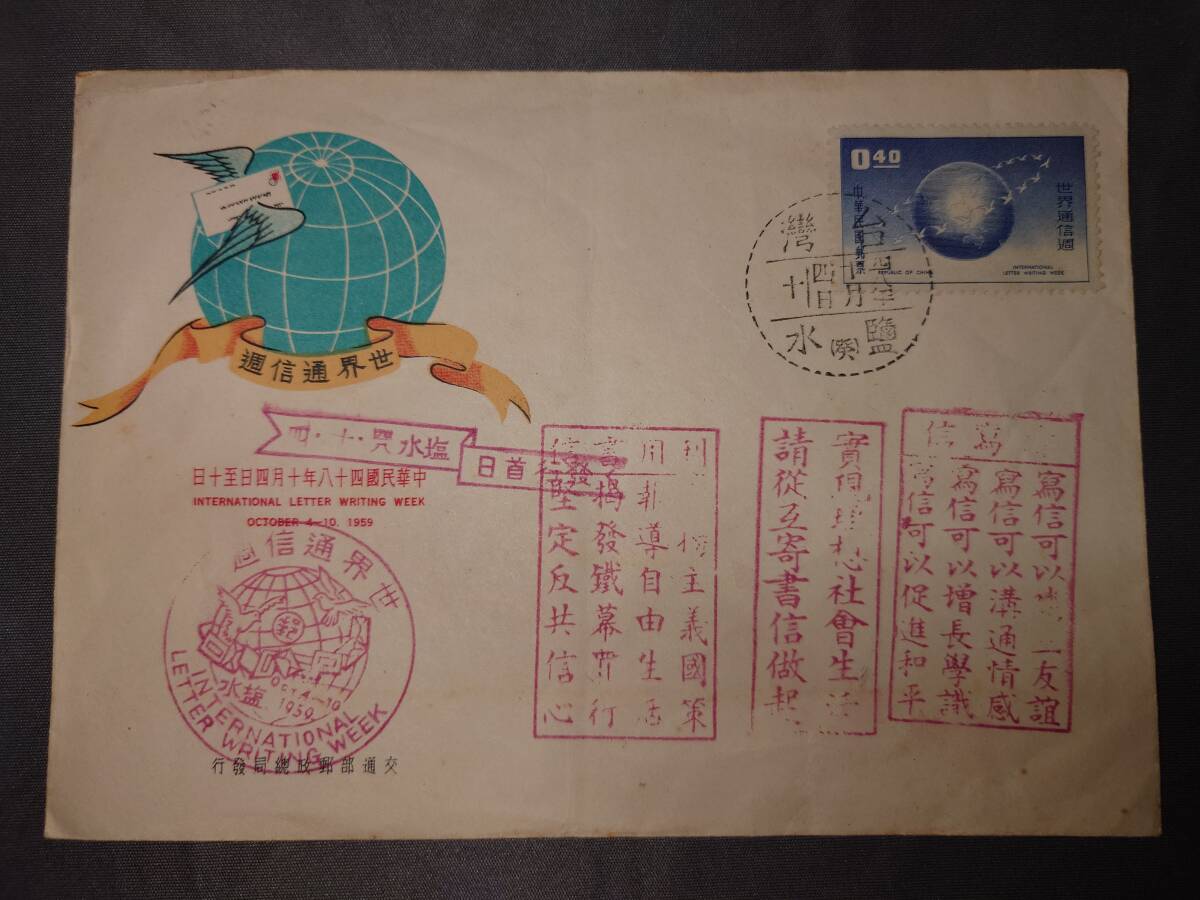 0 40
中華民國郵票
世界通信週
REPUBLIC OF CHINA
INTERNATIONAL
LETTER WRITING WEEK
台灣
四八年
十月
四日
十
鹽水
(癸)
世界通信週
塩水 四八·十·四
發行首日
中華民國四十八年十月四日至十日
INTERNATIONAL LETTER WRITING WEEK
OCTOBER 4-10, 1959
寫信
寫信可以 友誼
寫信可以溝通情感
寫信可以增長學識
寫信可以促進和平
實現理想社會生活
請從互寄書信做起
利 主義國策
用 報導自由生活
書 揭發鐵幕罪行
信 堅定反共信心
世界通信週
郵
OCT 4-10
1959
塩水
INTERNATIONAL
LETTER WRITING WEEK
交通部郵政總局發行